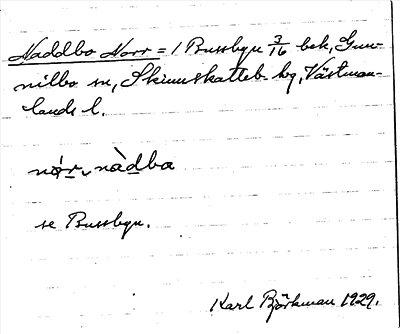 Naddbo Norr = 1 Bussbyn 3/16 bek, Gun-
nilbo sn, Skinnskatteb. bg, Västman-
lands l.
nø̀r, nàdba
se Bussbyn.
Karl Björkman 1929.